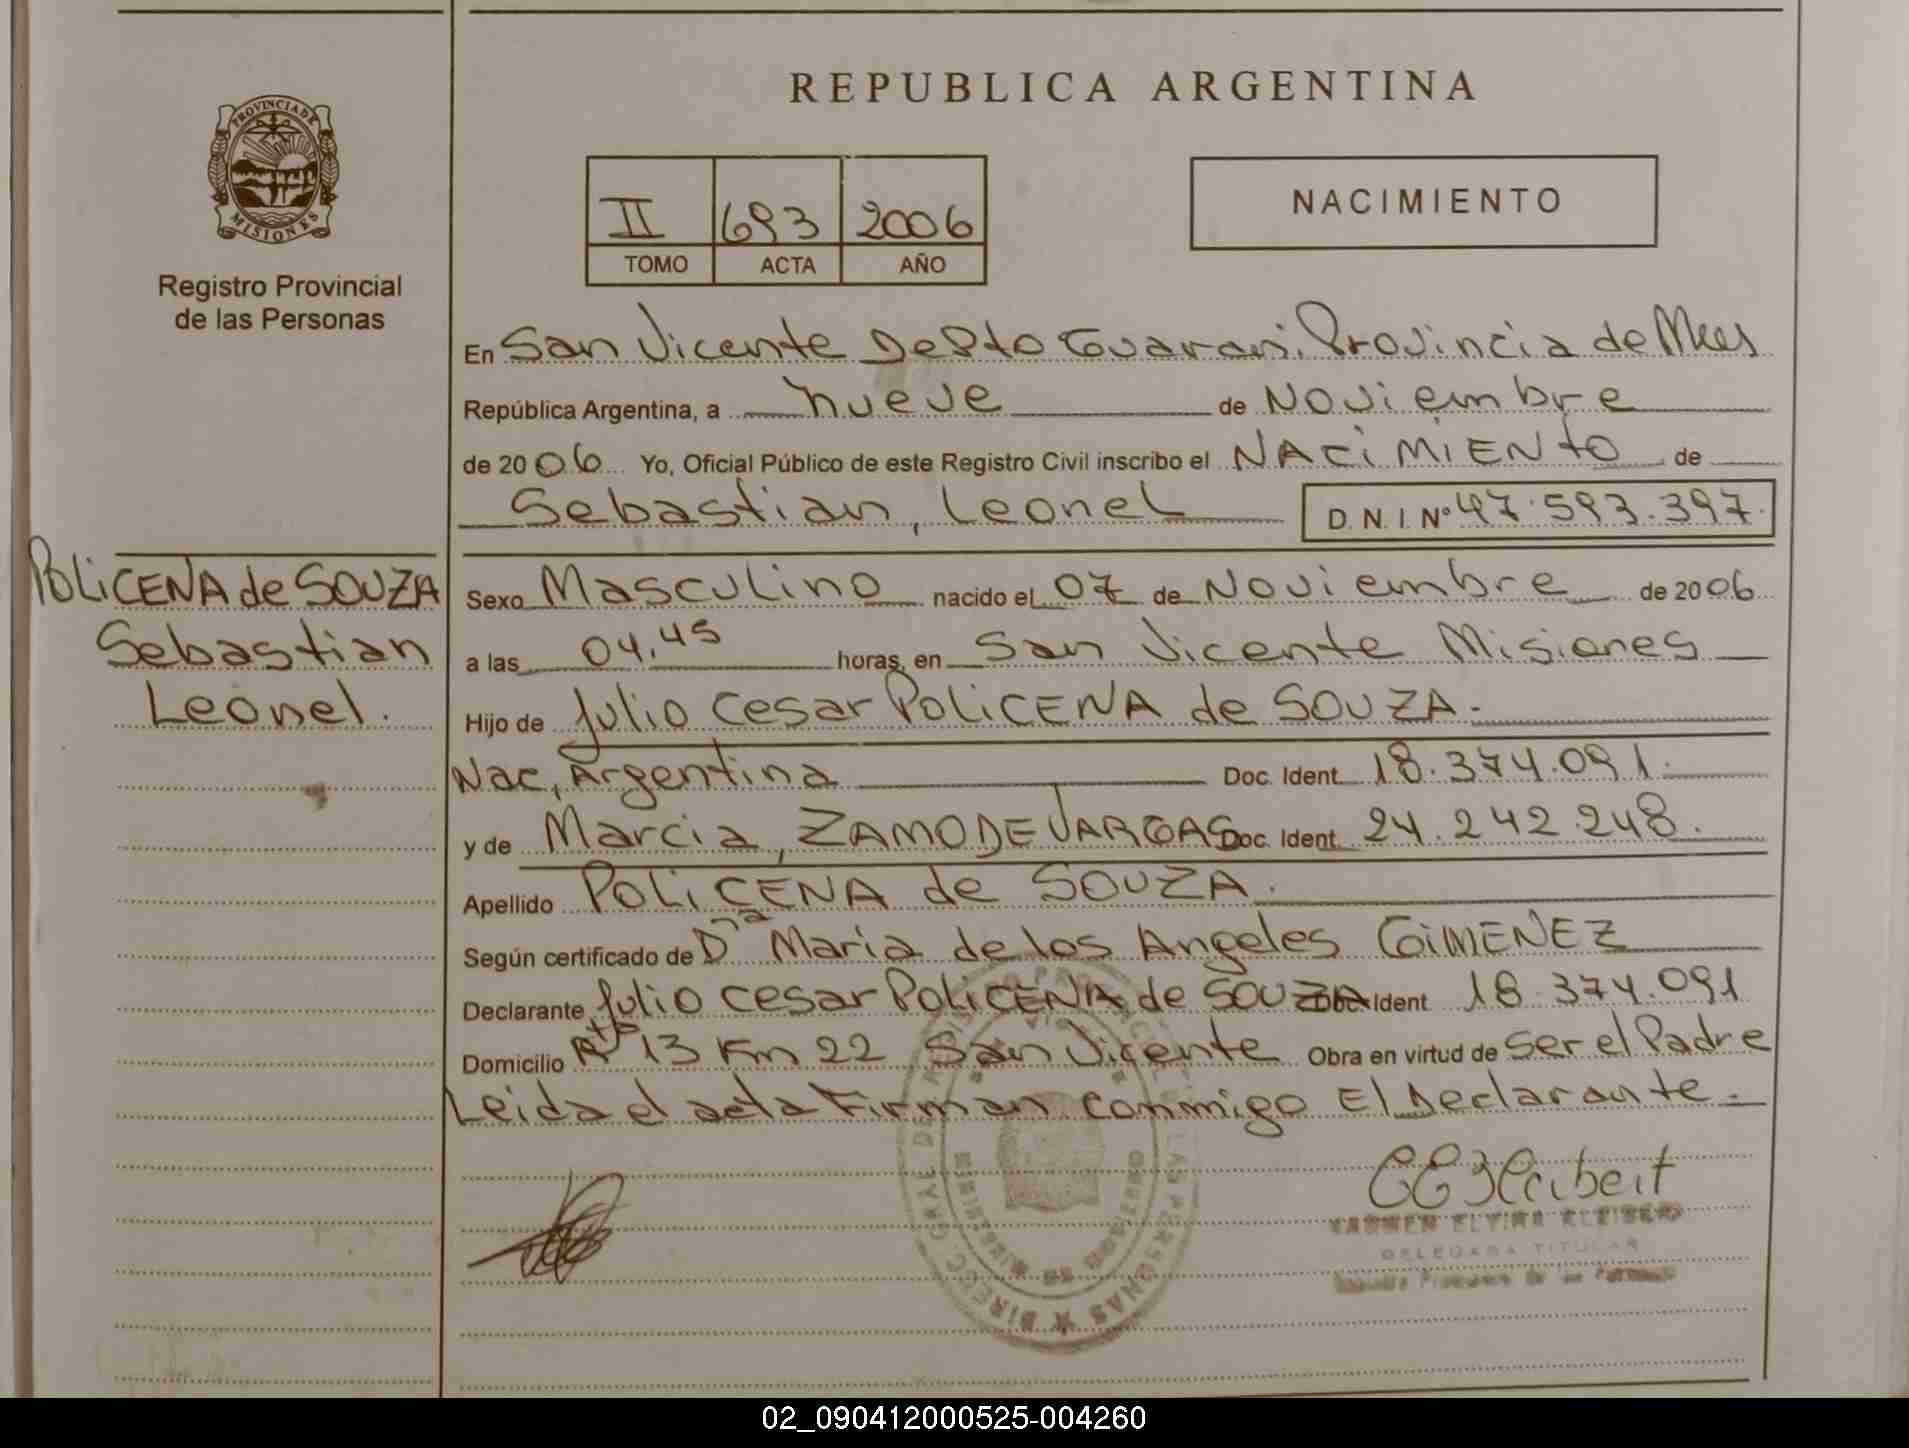 REPUBLICA ARGENTINA
PROVINCIA DE MISIONES
Registro Provincial
de las Personas
II 693 2006
TOMO ACTA AÑO
NACIMIENTO
En San Vicente Depto Guarani, Provincia de Mnes
República Argentina, a nueve de Noviembre
de 2006 Yo, Oficial Público de este Registro Civil inscribo el NACIMIENTO de
Sebastian, Leonel D.N.I.Nº 47.593.397.
POLICENA de SOUZA
Sebastian
Leonel.
Sexo Masculino nacido el 07 de Noviembre de 2006
a las 04,45 horas, en San Vicente Misiones
Hijo de Julio Cesar POLICENA de SOUZA.
Nac, Argentina Doc. Ident. 18.374.091.
y de Marcia, ZAMO DE VARGAS Doc. Ident. 24.242.248.
Apellido POLICENA de SOUZA.
Según certificado de Dña Maria de los Angeles GIMENEZ
Declarante Julio Cesar POLICENA de SOUZA Doc. Ident 18.374.091
Domicilio Rta 13 Km 22 San Vicente Obra en virtud de Ser el Padre
Leida el acta Firman conmigo El Declarante.
DELEGADA TITULAR
02_090412000525-004260